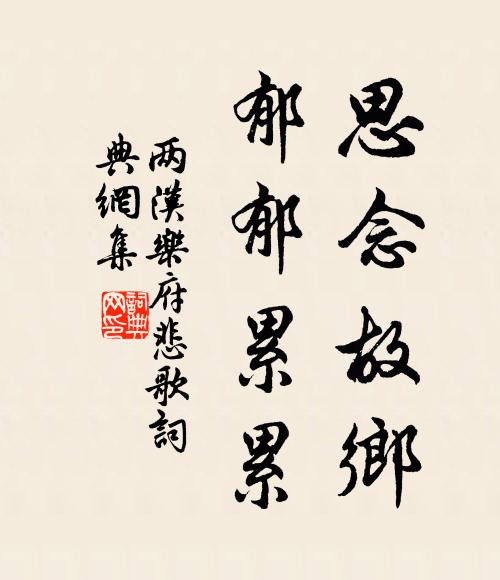 思念故鄉
郁郁累累
两漢樂府悲歌詞
典網集
詞典
网印